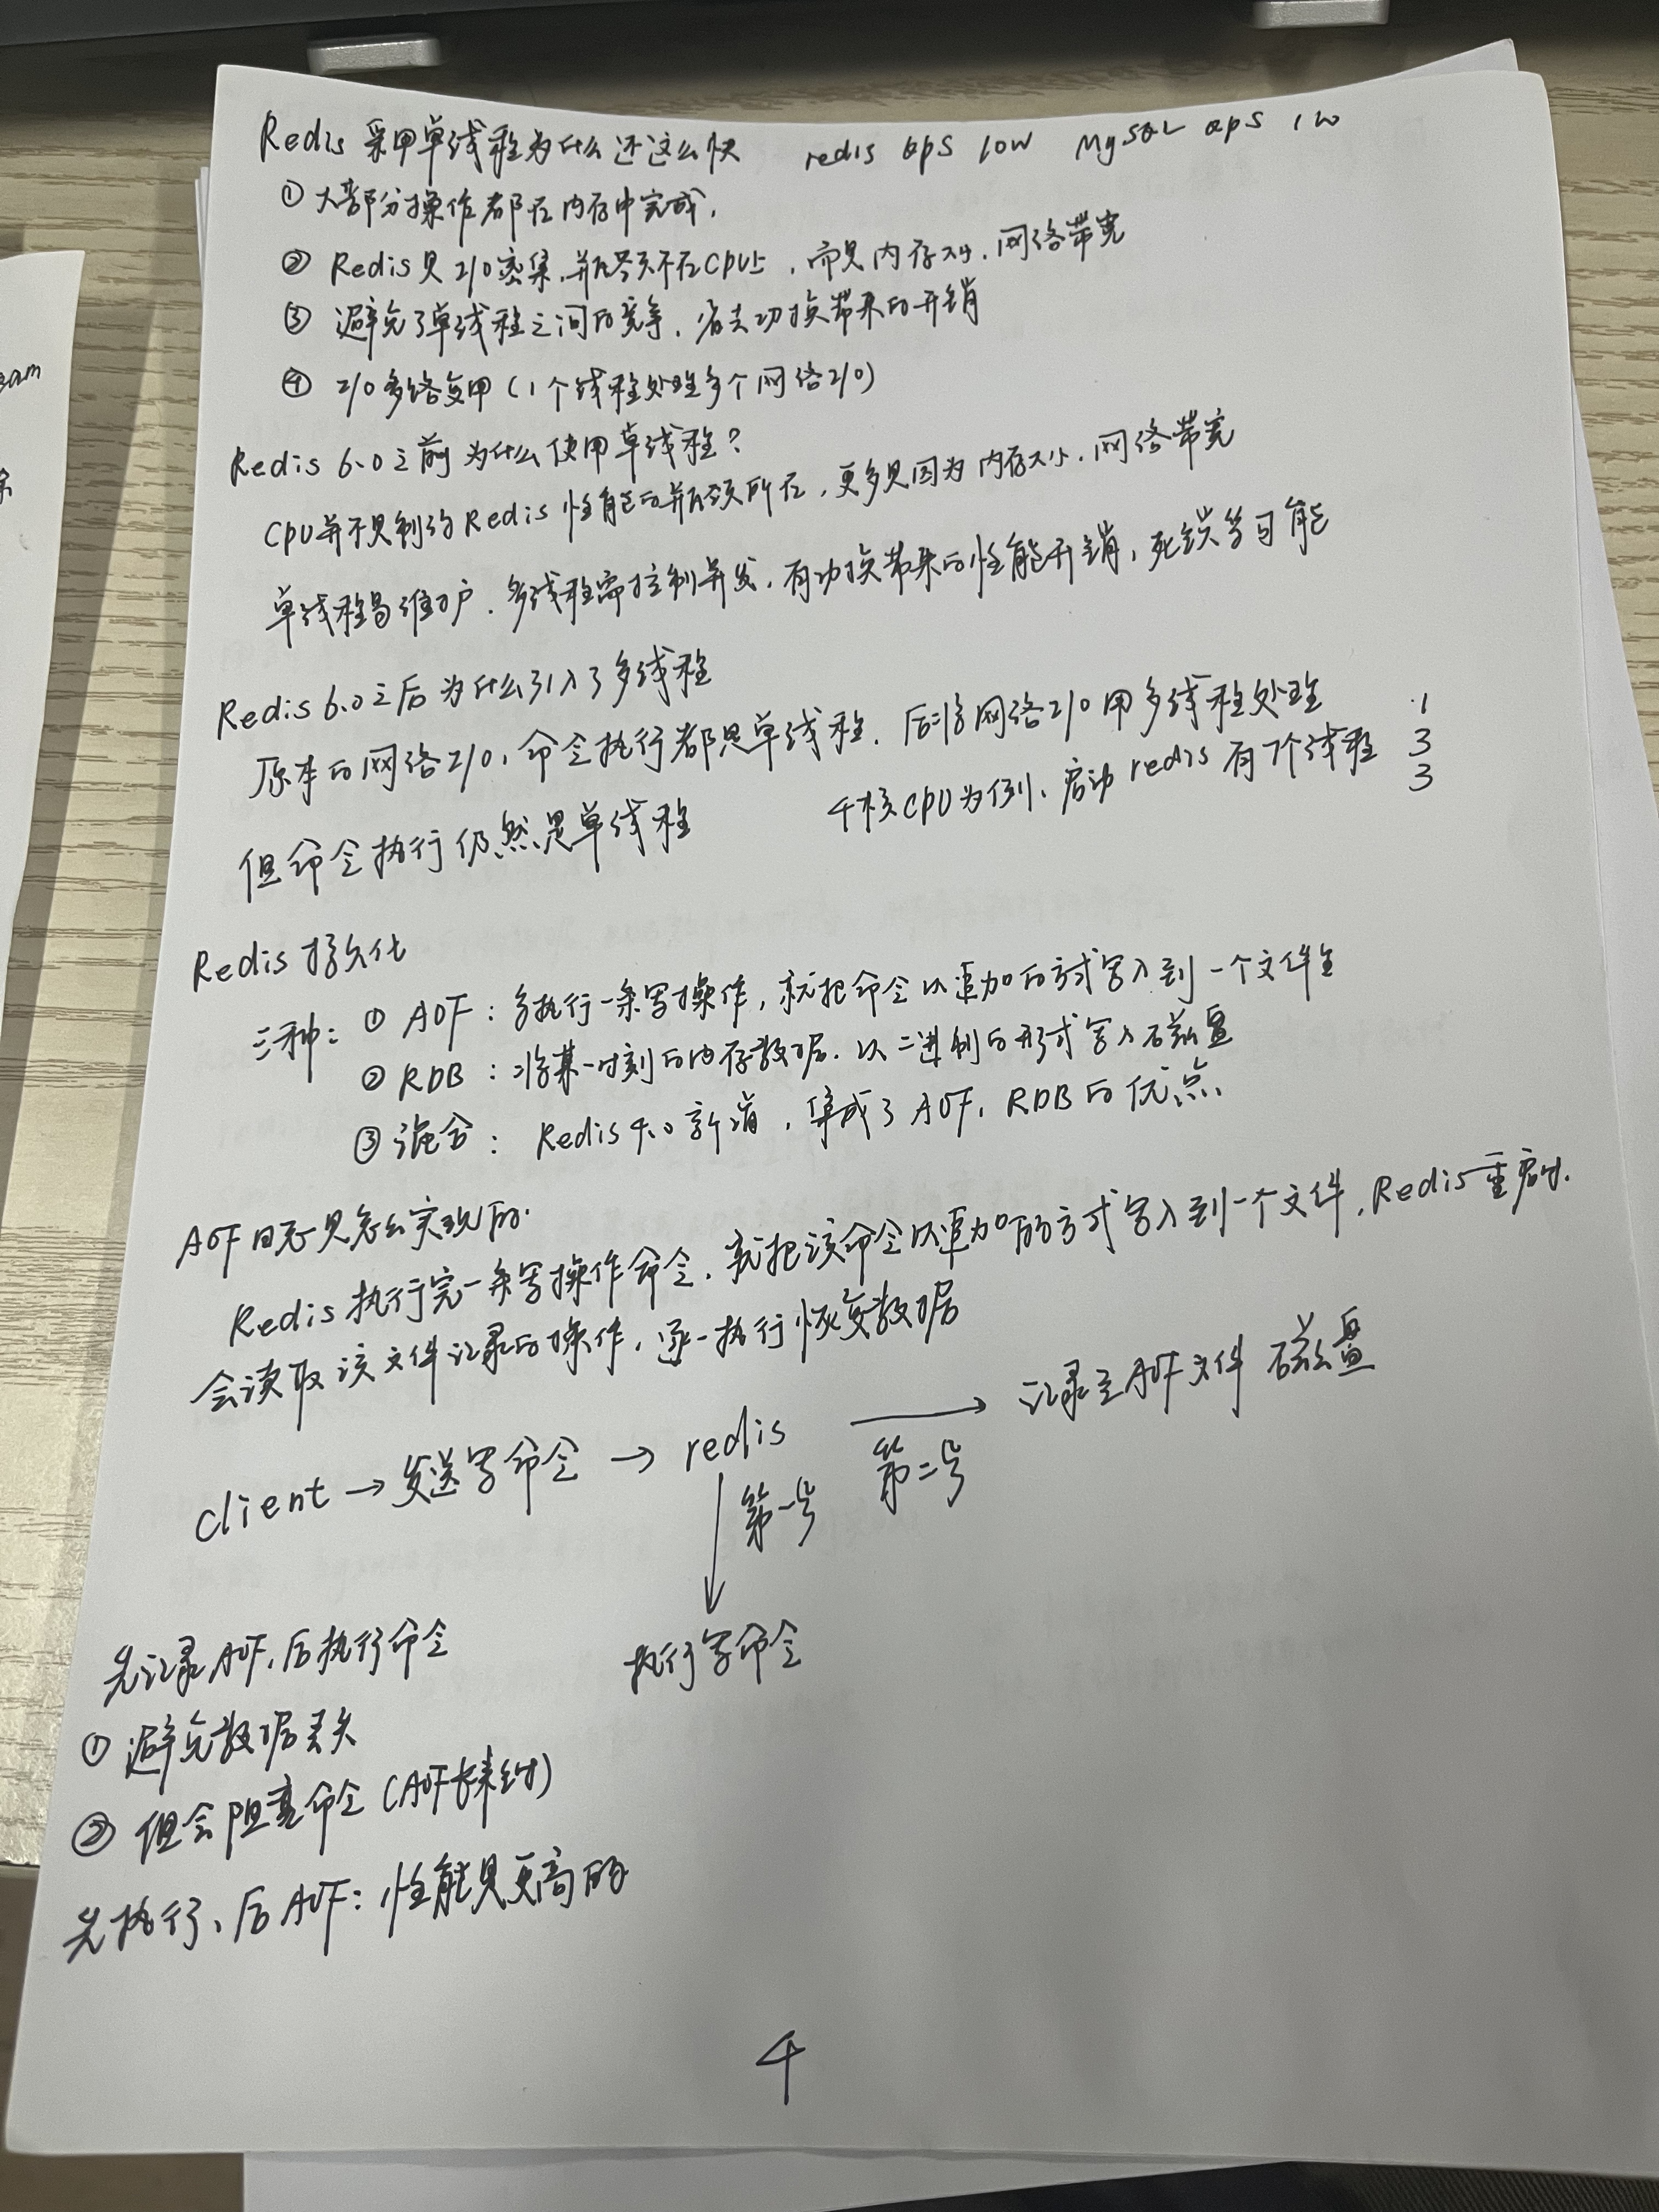 Redis 采用单线程为什么还这么快 redis qps 10w MySQL qps 1w
① 大部分操作都在内存中完成,
② Redis是I/O密集,瓶颈不在CPU上,而是内存大小、网络带宽
③ 避免了单线程之间的竞争,省去切换带来的开销
④ I/O多路复用(1个线程处理多个网络I/O)
Redis 6.0之前为什么使用单线程?
CPU并不是制约Redis性能的瓶颈所在,更多是因为内存大小、网络带宽
单线程易维护、多线程需控制并发,有切换带来的性能开销,死锁等可能
Redis 6.0之后为什么引入了多线程
原本的网络I/O,命令执行都是单线程,后将网络I/O用多线程处理 1
但命令执行仍然是单线程 4核CPU为例,启动redis有7个线程 3
3
Redis 持久化
三种: ① AOF: 每执行一条写操作,就把命令以追加的方式写入到一个文件里
② RDB: 将某一时刻的内存数据,以二进制的形式写入磁盘
③ 混合: Redis 4.0 新增,集成了AOF、RDB的优点
AOF日志是怎么实现的.
Redis执行完一条写操作命令,就把该命令以追加的方式写入到一个文件,Redis重启时.
会读取该文件记录的操作,逐一执行恢复数据
client → 发送写命令 → redis → 记录至AOF文件 磁盘
第一步 第二步
执行写命令
先记录AOF,后执行命令
① 避免数据丢失
② 但会阻塞命令(AOF
先执行、后AOF: 性能是更高的
4